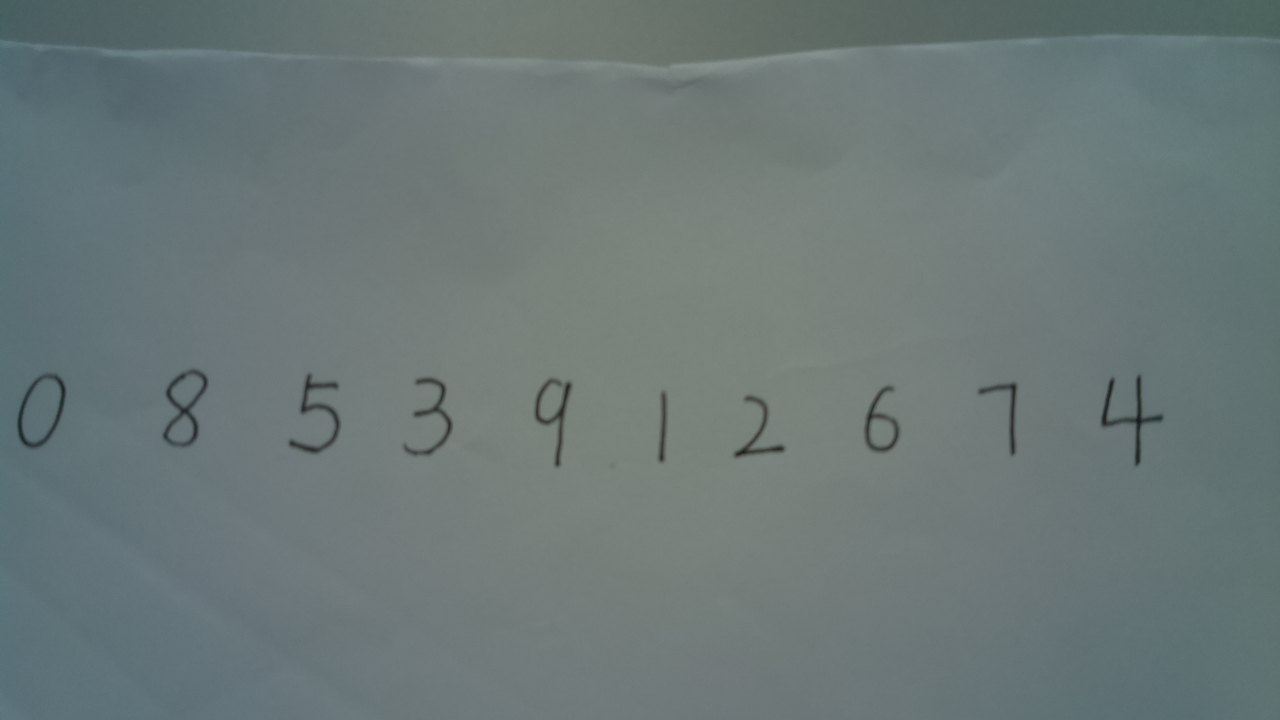 0 8 5 3 9 1 2 6 7 4